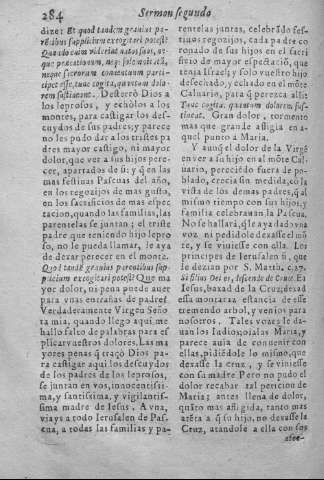 284 Sermon segundo
dize: Et quod tandem grauius pa-
rentibus supplicium excogitari potest?
Quādo cum viderint natos suos, at-
que precationum, neque solemnitatū,
neque sacrorum conuentuum parti-
cipes esse, tunc cogita, quantum dolo-
rem sustineant. Desterró Dios a
los leprosos, y echólos a los
montes, para castigar los des-
cuydos de sus padres; y parece
no les pudo dar a los tristes pa-
dres mayor castigo, ni mayor
dolor, que ver a sus hijos pere-
cer, apartados de si: y q̃ en las
mas festiuas Pascuas del año,
en los regozijos de mas gusto,
en los sacrificios de mas espec
tacion, quando las familias, las
parentelas se juntan; el triste
padre que teniendo hijo lepro
so, no le pueda llamar, le aya
de dexar perecer en el monte.
Quod tandē grauius parentibus sup-
plicium excogitari potest? Que ma
yor dolor, ni pena puede auer
para vnas entrañas de padres?
Verdaderamente Virgen Seño
ra mia, quando llego aqui, me
hallo falto de palabras para ex
plicar vuestros dolores. Las ma
yores penas q̃ traçó Dios pa-
ra castigar aqui los descuydos
de los padres de los leprosos,
se juntan en vos, innocentissi-
ma, y santissima, y vigilantis-
sima madre de Iesus. A vna,
viays a todo Ierusalen de Pas-
cua, a todas las familias y pa-
rentelas juntas, celebrādo fes-
tiuos regozijos, cada padre co
ronado de sus hijos en el sacri
ficio de mayor espectacion, que
tenia Israel; y solo vuestro hijo
desechado, y echado en el mōte
Caluario, para q̃ perezca alli?
Tunc cogita: quantum dolorem sus-
tineat. Gran dolor, tormento
mas que grande afligia en a-
quel punto a Maria.
Y aunq̃ el dolor de la Virgē
en ver a su hijo en al mōte Cal-
uario, perecido fuera de po-
blado, crecia sin medida, cō la
vista de los demas padres, q̃ al
mismo tiempo con sus hijos, y
familia celebrauan la Pascua.
No se hallará, q̃ le aya dado vna
voz, ni pedidole dexasse el mō
te, y se viniesse con ella. Los
principes de Ierusalen si, que
le dezian por S. Matth. c. 27.
si filius Dei es, descende de Cruce. Ea
Iesus, baxad de la Cruz; dexad
essa montaraz estancia de esse
tremendo arbol, y venios para
nosotros. Tales vozes le da-
uan los Iudios; oialas Maria, y
parece auia de conuenir con
ellas, pidiēdole lo mismo, que
dexasse la cruz, y se viniesse
con su madre. Pero no pudo el
dolor recabar tal peticion de
Maria; antes llena de dolor,
quāto mas afligida, tanto mas
atēta a q̃ su hijo, no dexasse la
Cruz, atandole a ella con sos
aten-